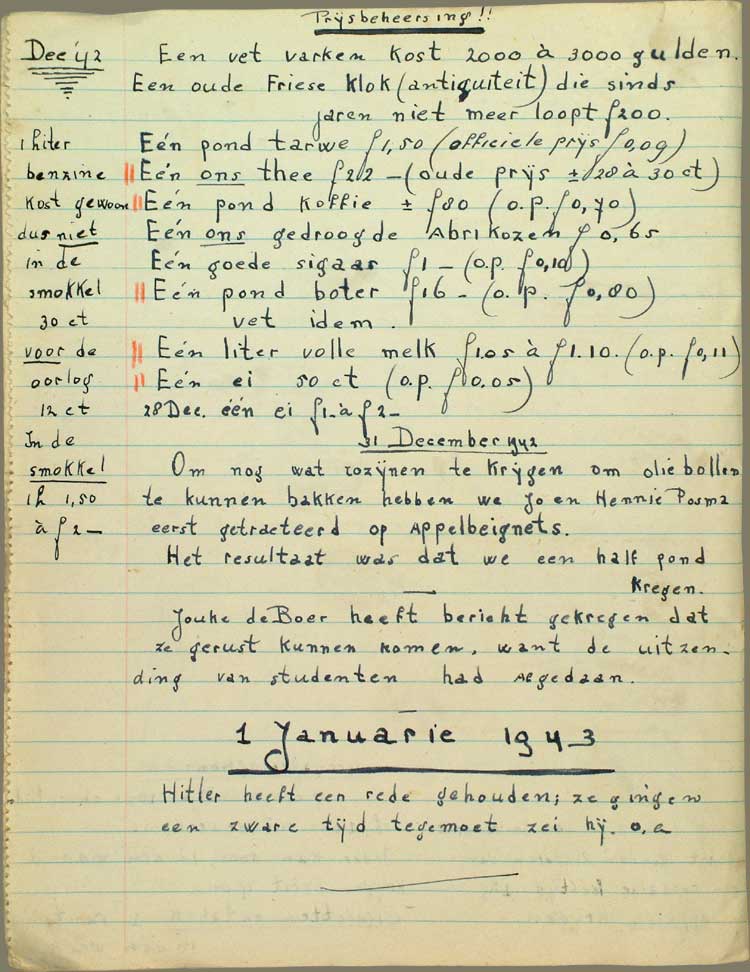 Prijsbeheersing!!
Dec '42
Een vet varken kost 2000 à 3000 gulden.
Een oude Friese klok (antiquiteit) die sinds
jaren niet meer loopt f200.
Eén pond tarwe f1,50 (officiele prijs f0,09)
Eén ons thee f22 - (oude prijs ± 28 à 30 ct)
Eén pond koffie ± f80 (o.p. f0,70)
Eén ons gedroogde Abrikozen f0,65
Eén goede sigaar f1 - (o.p. f0,10)
Eén pond boter f16 - (o.p. f0,80)
vet idem.
Eén liter volle melk f1.05 à f1.10. (o.p. f0,11)
Eén ei 50 ct (o.p. f0.05)
28 Dec. één ei f1.- à f2-
1 liter
benzine
kost gewoon
dus niet
in de
smokkel
30 ct
voor de
oorlog
12 ct
In de
smokkel
1,50
à f2-
31 December 1942
Om nog wat rozijnen te krijgen om oliebollen
te kunnen bakken hebben we Jo en Hennie Posma
eerst getracteerd op Appelbeignets.
Het resultaat was dat we een half pond
kregen.
Jouke de Boer heeft bericht gekregen dat
ze gerust kunnen komen, want de uitzen-
ding van studenten had afgedaan.
1 Januarie 1943
Hitler heeft een rede gehouden; ze gingen
een zware tijd tegemoet zei hij. o.a